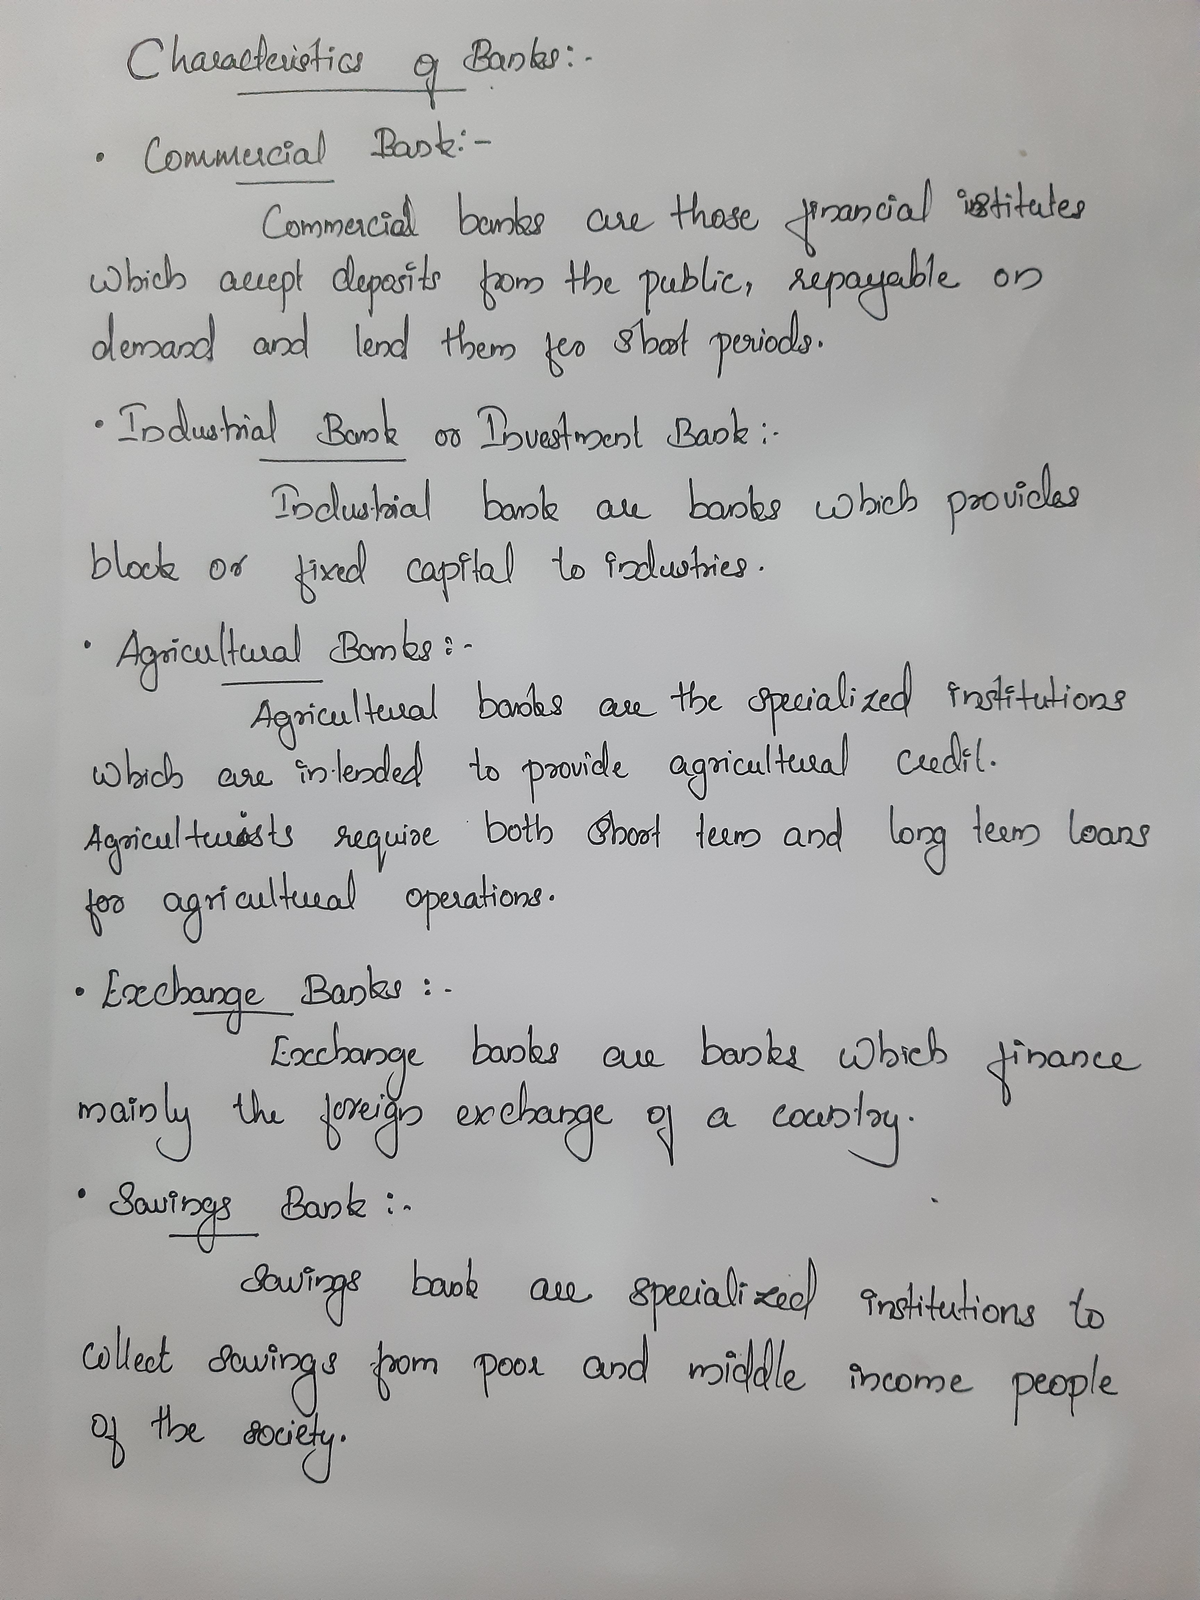 Characteristics of Banks:-
• Commercial Bank:-
Commercial banks are those financial institutes
which accept deposits from the public, repayable on
demand and lend them for short periods.
• Industrial Bank or Investment Bank:-
Industrial bank are banks which provides
block or fixed capital to industries.
• Agricultural Banks:-
Agricultural banks are the specialized institutions
which are intended to provide agricultural credit.
Agriculturists require both short term and long term loans
for agricultural operations.
• Exchange Banks:-
Exchange banks are banks which finance
mainly the foreign exchange of a country.
• Savings Bank:-
Savings bank are specialized institutions to
collect savings from poor and middle income people
of the society.